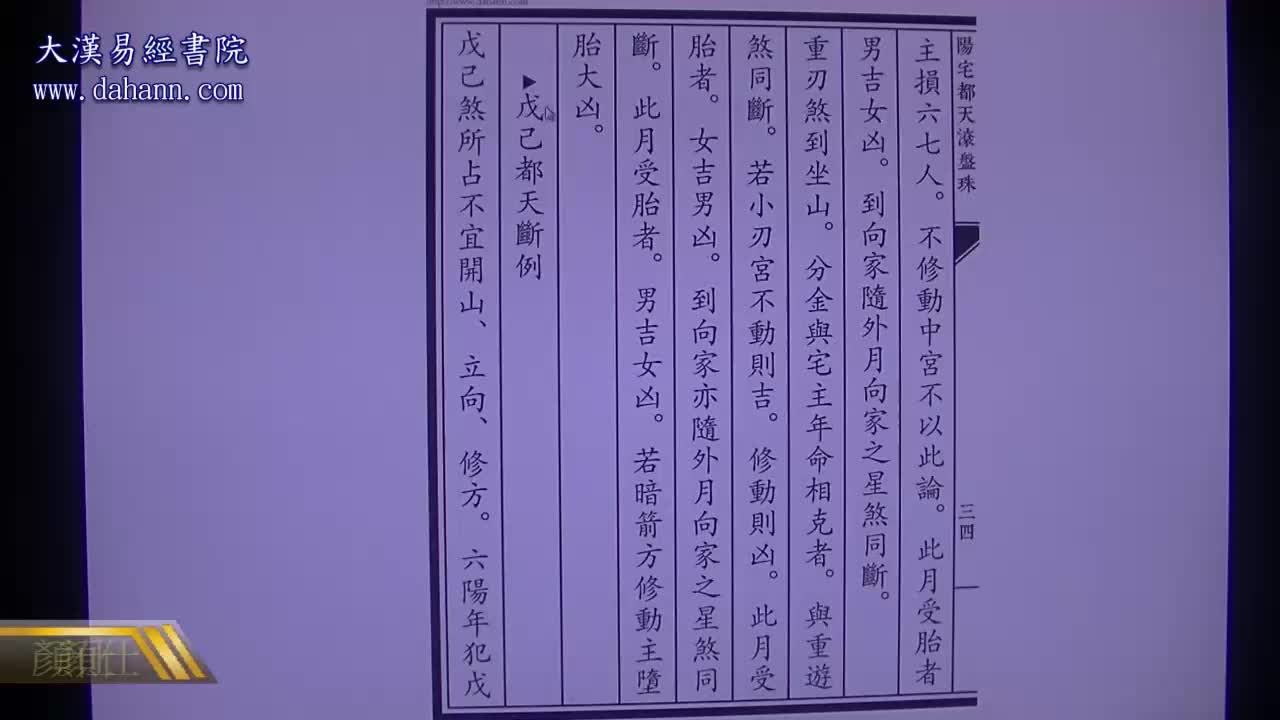 大漢易經書院
www.dahann.com
陽宅都天滾盤珠
三四
主損六七人。不修動中宮不以此論。此月受胎者
男吉女凶。到向家隨外月向家之星煞同斷。
重刃煞到坐山。分金與宅主年命相克者。與重遊
煞同斷。若小刃宮不動則吉。修動則凶。此月受
胎者。女吉男凶。到向家亦隨外月向家之星煞同
斷。此月受胎者。男吉女凶。若暗箭方修動主墮
胎大凶。
▶戊己都天斷例
戊己煞所占不宜開山、立向、修方。六陽年犯戊